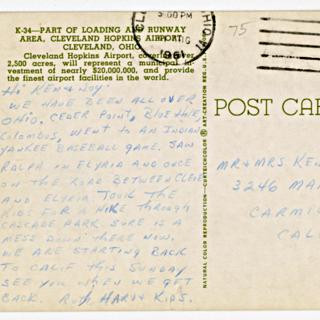 K-34—PART OF LOADING AND RUNWAY
AREA, CLEVELAND HOPKINS AIRPORT,
CLEVELAND, OHIO
Cleveland Hopkins Airport, covering over
2,500 acres, will represent a municipal in-
vestment of nearly $20,000,000, and provide
the finest airport facilities in the world.
5:00 PM
1961
OHIO
75
Hi Ken & Joy:
WE HAVE BEEN ALL OVER
OHIO. CEDER POINT, BLUE HOLE,
COLOMBUS, WENT TO AN INDIAN
YANKEE BASEBALL GAME. SAW
RALPH IN ELYRIA AND ONCE
ON THE ROAD BETWEEN CLEVE
AND ELYRIA. TOOK THE
KIDS FOR A HIKE THROUGH
CASCADE PARK. SURE IS A
MESS DOWN THERE NOW.
WE ARE STARTING BACK
TO CALIF THIS SUNDAY
SEE YOU WHEN WE GET
BACK. Ruth, HARV & KIDS.
NATURAL COLOR REPRODUCTION—CURTEICHCOLOR ® ART-CREATION
POST CAR
MR & MRS KEN
3246 MA
CARMI
CAL